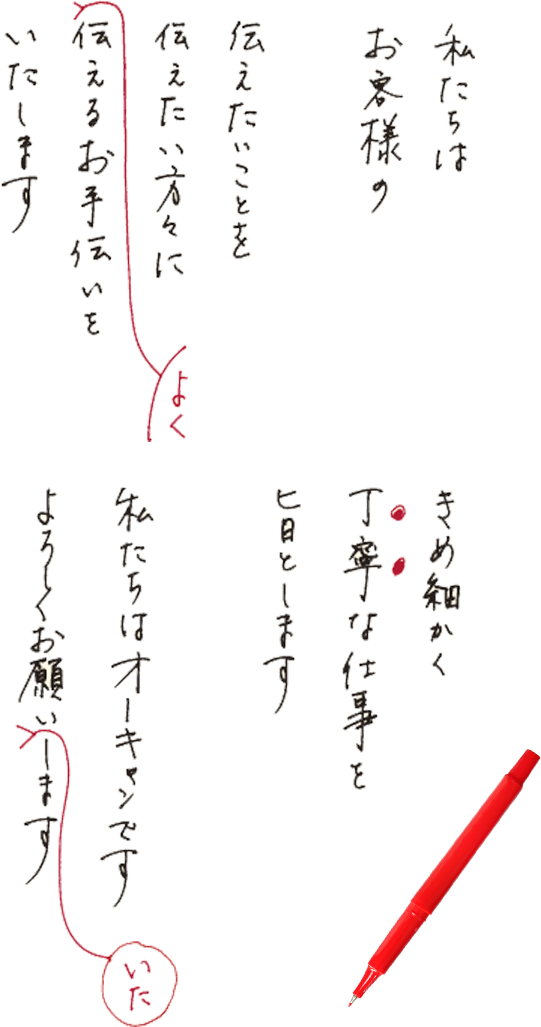 私たちは
お客様の
伝えたいことを
伝えたい方々に
よく
伝えるお手伝いを
いたします
きめ細かく
丁寧な仕事を
旨とします
私たちはオーキャンです
よろしくお願いします
いた